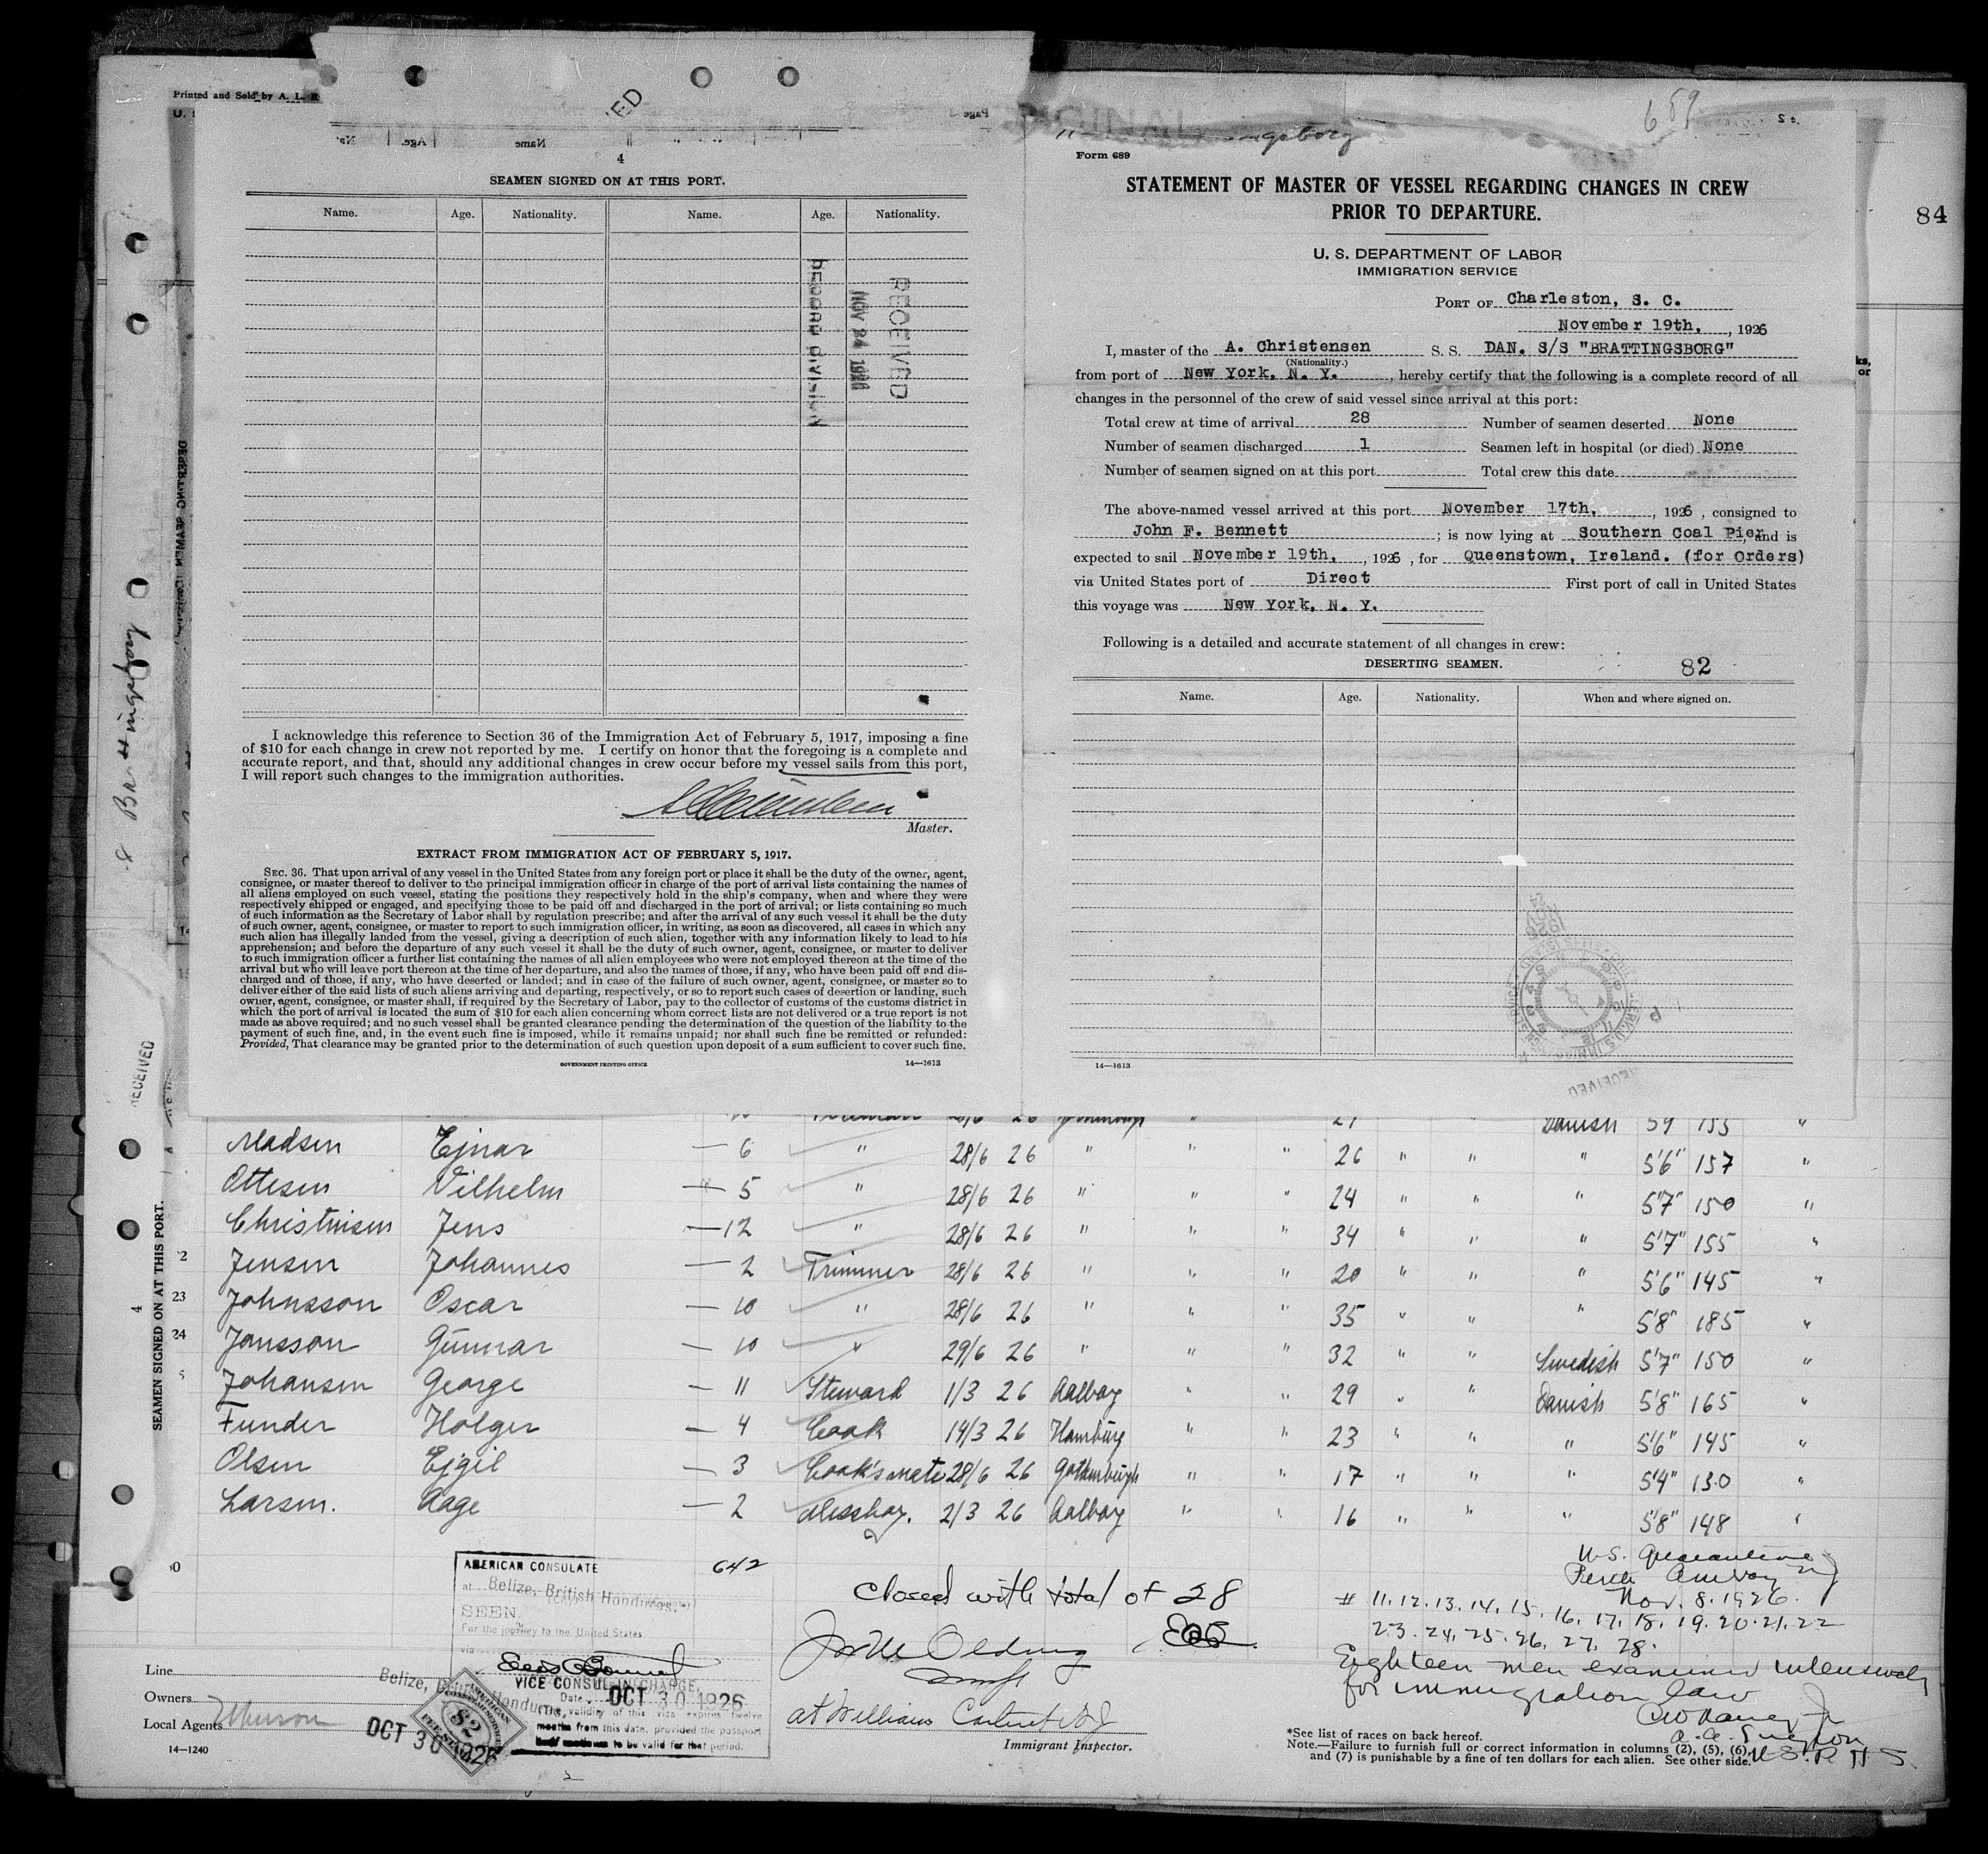 Printed and Sold by A. L. R
4
SEAMEN SIGNED ON AT THIS PORT.
Name. Age. Nationality. Name. Age. Nationality.
RECEIVED
NOV 24 1926
RECORD DIVISION
I acknowledge this reference to Section 36 of the Immigration Act of February 5, 1917, imposing a fine
of $10 for each change in crew not reported by me. I certify on honor that the foregoing is a complete and
accurate report, and that, should any additional changes in crew occur before my vessel sails from this port,
I will report such changes to the immigration authorities.
Master.
EXTRACT FROM IMMIGRATION ACT OF FEBRUARY 5, 1917.
SEC. 36. That upon arrival of any vessel in the United States from any foreign port or place it shall be the duty of the owner, agent,
consignee, or master thereof to deliver to the principal immigration officer in charge of the port of arrival lists containing the names of
all aliens employed on such vessel, stating the positions they respectively hold in the ship's company, when and where they were
respectively shipped or engaged, and specifying those to be paid off and discharged in the port of arrival; or lists containing so much
of such information as the Secretary of Labor shall by regulation prescribe; and after the arrival of any such vessel it shall be the duty
of such owner, agent, consignee, or master to report to such immigration officer, in writing, as soon as discovered, all cases in which any
such alien has illegally landed from the vessel, giving a description of such alien, together with any information likely to lead to his
apprehension; and before the departure of any such vessel it shall be the duty of such owner, agent, consignee, or master to deliver
to such immigration officer a further list containing the names of all alien employees who were not employed thereon at the time of the
arrival but who will leave port thereon at the time of her departure, and also the names of those, if any, who have been paid off and dis-
charged and of those, if any, who have deserted or landed; and in case of the failure of such owner, agent, consignee, or master so to
deliver either of the said lists of such aliens arriving and departing, respectively, or so to report such cases of desertion or landing, such
owner, agent, consignee, or master shall, if required by the Secretary of Labor, pay to the collector of customs of the customs district in
which the port of arrival is located the sum of $10 for each alien concerning whom correct lists are not delivered or a true report is not
made as above required; and no such vessel shall be granted clearance pending the determination of the question of the liability to the
payment of such fine, and, in the event such fine is imposed, while it remains unpaid; nor shall such fine be remitted or refunded:
Provided, That clearance may be granted prior to the determination of such question upon deposit of a sum sufficient to cover such fine.
GOVERNMENT PRINTING OFFICE 14—1613
659
Form 689
STATEMENT OF MASTER OF VESSEL REGARDING CHANGES IN CREW
PRIOR TO DEPARTURE.
84
U. S. DEPARTMENT OF LABOR
IMMIGRATION SERVICE
PORT OF Charleston, S. C.
November 19th, , 1926
I, master of the A. Christensen S. S. DAN. S/S "BRATTINGSBORG"
(Nationality.)
from port of New York, N. Y. , hereby certify that the following is a complete record of all
changes in the personnel of the crew of said vessel since arrival at this port:
Total crew at time of arrival 28 Number of seamen deserted None
Number of seamen discharged 1 Seamen left in hospital (or died) None
Number of seamen signed on at this port Total crew this date
The above-named vessel arrived at this port November 17th, , 1926 , consigned to
John F. Bennett ; is now lying at Southern Coal Pier, and is
expected to sail November 19th, , 1926 , for Queenstown, Ireland. (for Orders)
via United States port of Direct First port of call in United States
this voyage was New York, N. Y.
Following is a detailed and accurate statement of all changes in crew:
DESERTING SEAMEN. 82
Name. Age. Nationality. When and where signed on.
14—1613
Brattingsborg
RECEIVED
4 SEAMEN SIGNED ON AT THIS PORT.
Madsen Ejnar — 6 " 28/6 26 " " " 26 " " " 5'6" 157 "
Ottesen Vilhelm — 5 " 28/6 26 " " " 24 " " " 5'7" 150 "
Christensen Jens — 12 " 28/6 26 " " " 34 " " " 5'7" 155 "
2 Jensen Johannes — 2 Trimmer 28/6 26 " " " 20 " " " 5'6" 145 "
23 Johnsson Oscar — 10 " 28/6 26 " " 35 " " " 5'8" 185 "
24 Jonsson Gunnar — 10 " 29/6 26 " " " 32 " " Swedish 5'7" 150 "
5 Johansen George — 11 Steward 1/3 26 Aalborg " " 29 " " Danish 5'8" 165 "
Funder Holger — 4 Cook 14/3 26 Hamburg " " 23 " " " 5'6" 145 "
Olsen Ejgil — 3 Cook's mate 28/6 26 Gothenburgh " " 17 " " " 5'4" 130 "
Larsen. Aage — 2 Messboy. 2/3 26 Aalborg " " 16 " " " 5'8" 148 "
30
642
AMERICAN CONSULATE
at Belize, British Honduras.
SEEN
For the journey to the United States
via
VICE CONSUL IN CHARGE,
Date OCT 30 1926
The validity of this visa expires twelve
months from this date, provided the passport
continues to be valid for that period.
Belize, British Honduras,
AMERICAN CONSULAR SERVICE $2 FEE STAMP
OCT 30 1926
Closed with total of 28
Immigrant Inspector.
U.S. Quarantine
Perth Amboy NJ
Nov. 8. 1926.
# 11. 12. 13. 14. 15. 16. 17. 18. 19. 20. 21. 22
23. 24. 25. 26. 27. 28.
Eighteen men examined intensively
for immigration law
A. A. Surgeon
U.S.P.H.S.
Line
Owners
Local Agents
14—1240
*See list of races on back hereof.
Note.—Failure to furnish full or correct information in columns (2), (5), (6),
and (7) is punishable by a fine of ten dollars for each alien. See other side.